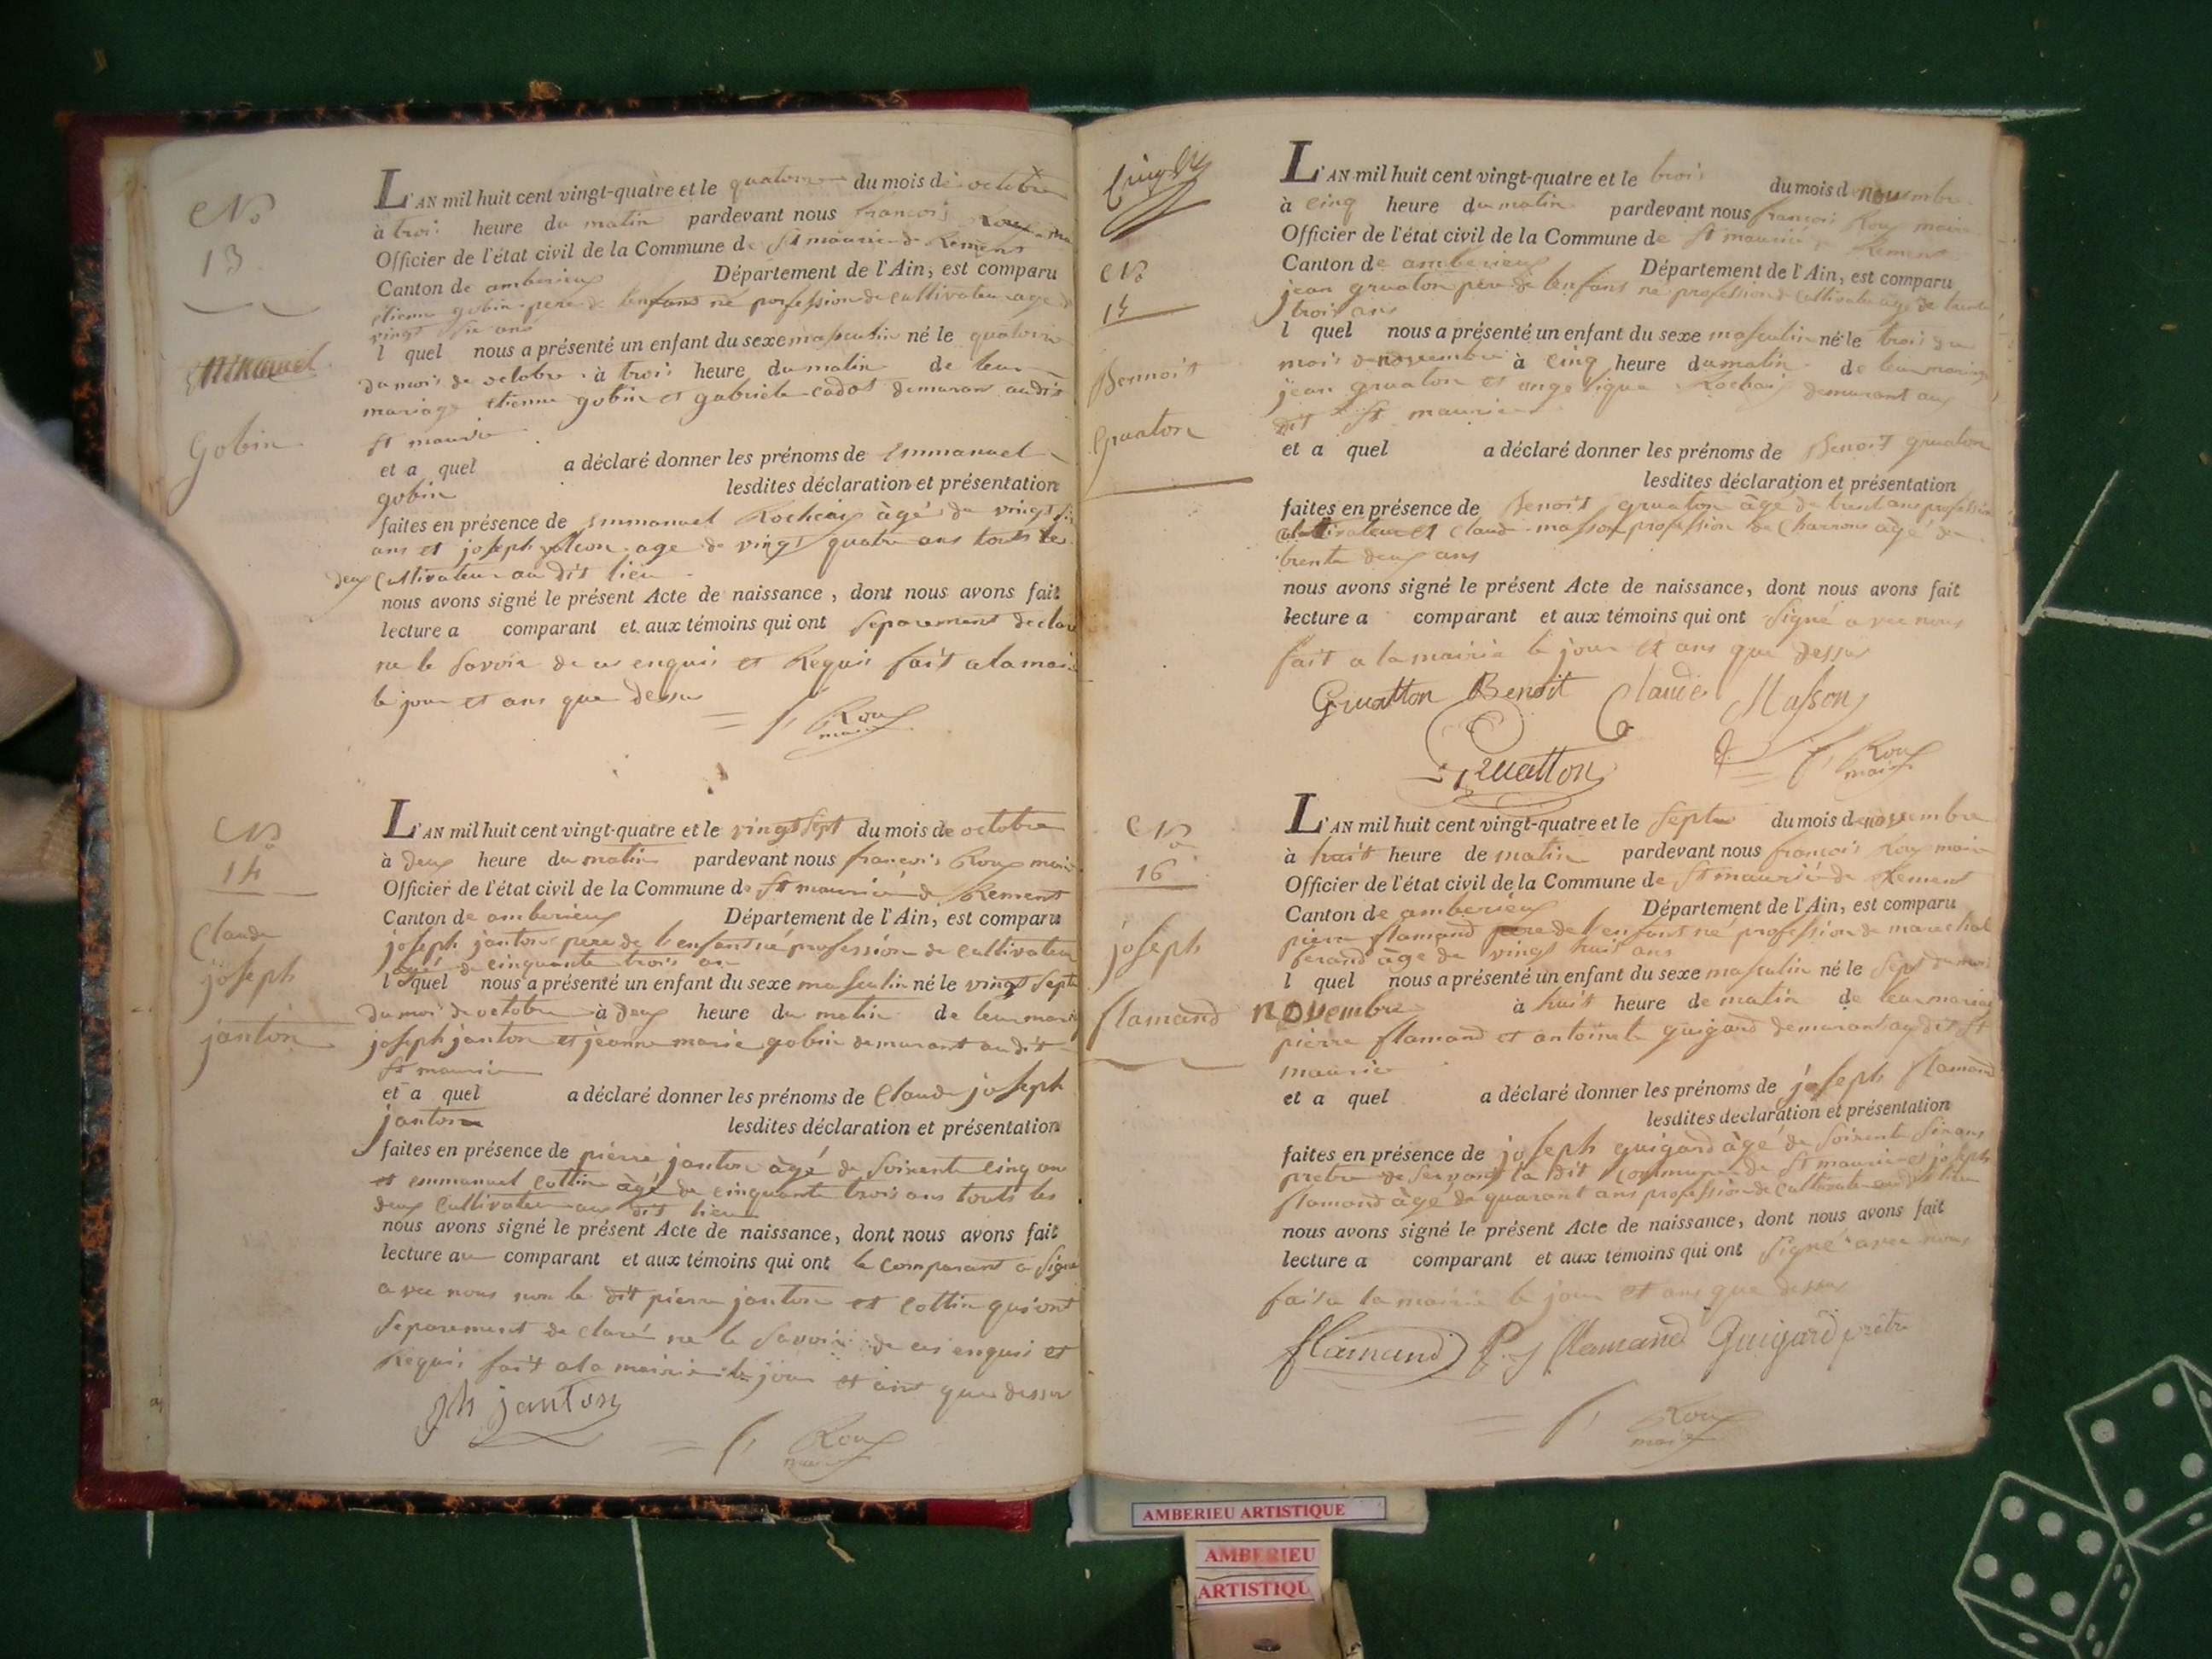 No
13
Emmanuel
Gobin
L'AN mil huit cent vingt-quatre et le quatorze du mois de octobre
à trois heure du matin pardevant nous francois Roux maire
Officier de l'état civil de la Commune de St maurice de Remens
Canton de amberieux Département de l'Ain, est comparu
etienne gobin pere de lenfans né profession de cultivateur age de
vingt six ans
l quel nous a présenté un enfant du sexe masculin né le quatorze
du mois de octobre à trois heure du matin de leur
mariage etienne gobin et gabriele cadot demurant audit
St maurice
et a quel a déclaré donner les prénoms de Emmanuel
gobin lesdites déclaration et présentation
faites en présence de Emmanuel Rochaix âgé de vingt six
ans et joseph age de vingt quatre ans touts les
deux Cultivateur au dit lieu
nous avons signé le présent Acte de naissance, dont nous avons fait
lecture a comparant et aux témoins qui ont separement declaré
ne le savoir de ce enquis et Requis fait a la mairie
le jour et ans que dessus
f Roux
maire
No
14
Claude
joseph
janton
L'AN mil huit cent vingt-quatre et le vingt sept du mois de octobre
à deux heure du matin pardevant nous francois Roux maire
Officier de l'état civil de la Commune de St maurice de Rement
Canton de amberieux Département de l'Ain, est comparu
joseph janton pere de lenfant né profession de cultivateur
agé de cinquante trois an
l quel nous a présenté un enfant du sexe masculin né le vingt sept
du moi de octobre à deux heure du matin de leur mariage
joseph janton et jeanne marie gobin demurant au dit
St maurice
et a quel a déclaré donner les prénoms de Claude joseph
janton lesdites déclaration et présentation
faites en présence de pierre janton âgé de soixente cinq an
et emmanuel cottin âgé de cinquante trois ans touts les
deux Cultivateur au dit lieu
nous avons signé le présent Acte de naissance, dont nous avons fait
lecture au comparant et aux témoins qui ont le comparant a signé
avec nous non le dit pierre janton et cottin qui ont
separement declaré ne le savoir de ces enquis et
Requis fait a la mairie le jour et ans que dessus
jh janton
f Roux
maire
No
15
Bennoit
gruaton
L'AN mil huit cent vingt-quatre et le trois du mois d novembre
à cinq heure du matin pardevant nous francois Roux maire
Officier de l'état civil de la Commune de St maurice Rement
Canton de amberieux Département de l'Ain, est comparu
jean gruaton pere de lenfans né profession de cultivateur age de trente
trois ans
l quel nous a présenté un enfant du sexe masculin né le trois du
mois de novembre à cinq heure du matin de leur mariage
jean gruaton et angelique Rochaix demurant au
dit St maurice
et a quel a déclaré donner les prénoms de Benoit gruaton
lesdites déclaration et présentation
faites en présence de Benoit gruaton âgé de ans profession
cultivateur et claude masson profession de Charrons agé de
trente deux ans
nous avons signé le présent Acte de naissance, dont nous avons fait
lecture a comparant et aux témoins qui ont signé avec nous
fait a la mairie le jour et ans que dessus
Gruatton Benoit Claude Masson
Gruatton
f Roux
maire
No
16
joseph
flamand
L'AN mil huit cent vingt-quatre et le sept du mois de novembre
à huit heure de matin pardevant nous francois Roux maire
Officier de l'état civil de la Commune de St maurice de Rement
Canton de amberieux Département de l'Ain, est comparu
pierre flamand pere de lenfant né profession de marechal
ferand âge de vingt huit ans
l quel nous a présenté un enfant du sexe masculin né le sept du mois
novembre à huit heure de matin de leur mariage
pierre flamand et antoinete guigard demurant au dit St
maurice
et a quel a déclaré donner les prénoms de joseph flamand
lesdites declaration et présentation
faites en présence de joseph guigard âgé de soixente six ans
pretre de servant la dit Commune de St maurice et joseph
flamand âgé de quarant ans profession de cultivateur audit lieu
nous avons signé le présent Acte de naissance, dont nous avons fait
lecture a comparant et aux témoins qui ont signé avec nous
fait a la mairie le jour et ans que dessus
flamand P. j flamand Guigard prêtre
f Roux
maire
AMBERIEU ARTISTIQUE
AMBERIEU
ARTISTIQU